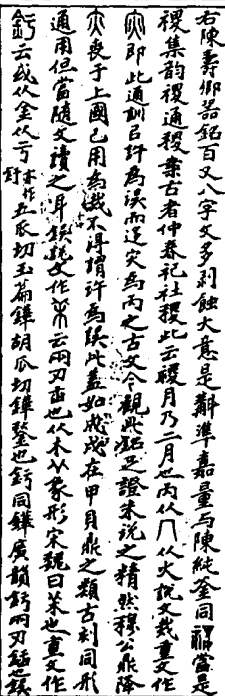 右陳壽卿器銘百又八字文多剥蝕大意是斠準嘉量與陳純釜同當是
稷集韵稷通稷案古者仲春祀社稷此云稷月乃二月也丙从冂从火說文烖重文作
即此通訓已許為誤而遂宋為丙之古文今觀此銘足證朱說之精然穆公鼎降
大喪于上國已用為烖不得謂許為誤此蓋如戌成在甲貝鼎之類古刻同形
通用但當隨文讀之耳說文作云兩刃臿也从木丫象形宋魏曰也重文作
釫云或从金从亏亦作釪五瓜切玉篇鏵胡瓜切鏵鍫也釫同鏵廣韻釫兩刃臿也